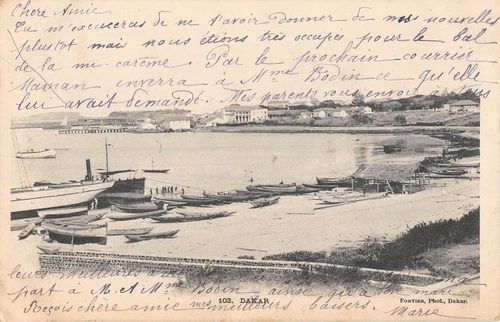 Chère Amie
Tu m'excuseras de ne t'avoir donner de mes nouvelles
plustot mais nous étions très occupés pour le bal
de la mi-carème. Par le prochain courrier
Maman enverra à Mme Bodin ce qu'elle
lui avait demandé. Mes parents vous envoi
leurs meilleures
part à M. et Mme Bodin ainsi mari
Reçois chère amie mes meilleurs baisers. Marie
103. DAKAR
FORTIER, Phot., Dakar.